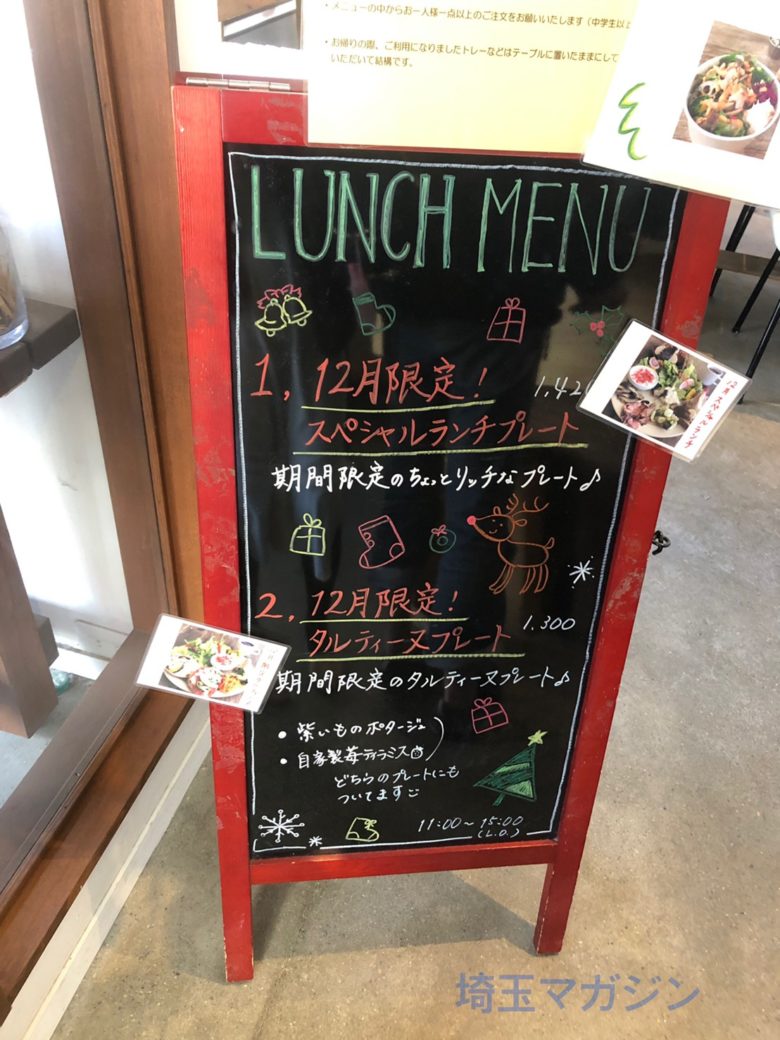 ・メニューの中からお一人様一点以上のご注文をお願いいたします（中学生以上
・お帰りの際、ご利用になりましたトレーなどはテーブルに置いたままにして
いただいて結構です。
LUNCH MENU
1, 12月限定！ 1,42
スペシャルランチプレート
12月 スペシャルランチ
期間限定のちょっとリッチなプレート♪
2, 12月限定！
タルティーヌプレート 1.300
期間限定のタルティーヌプレート♪
・紫いものポタージュ
・自家製苺ティラミス
どちらのプレートにも
ついてます
11:00〜15:00
(L.O.)
埼玉マガジン